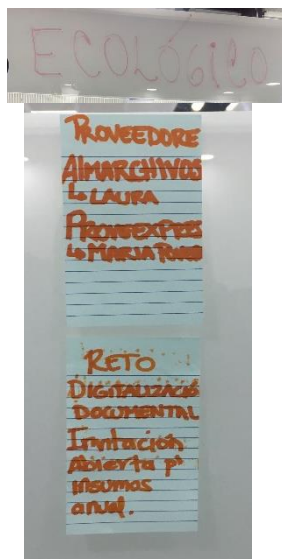 ECOLÓGICO
PROVEEDORE
AIMARCHIVOS
↳ LAURA
PROVEEXPRES
↳ MARIA
RETO
DIGITALIZACIÓ
DOCUMENTAL
Invitación
Abierta p'
insumos
anual.